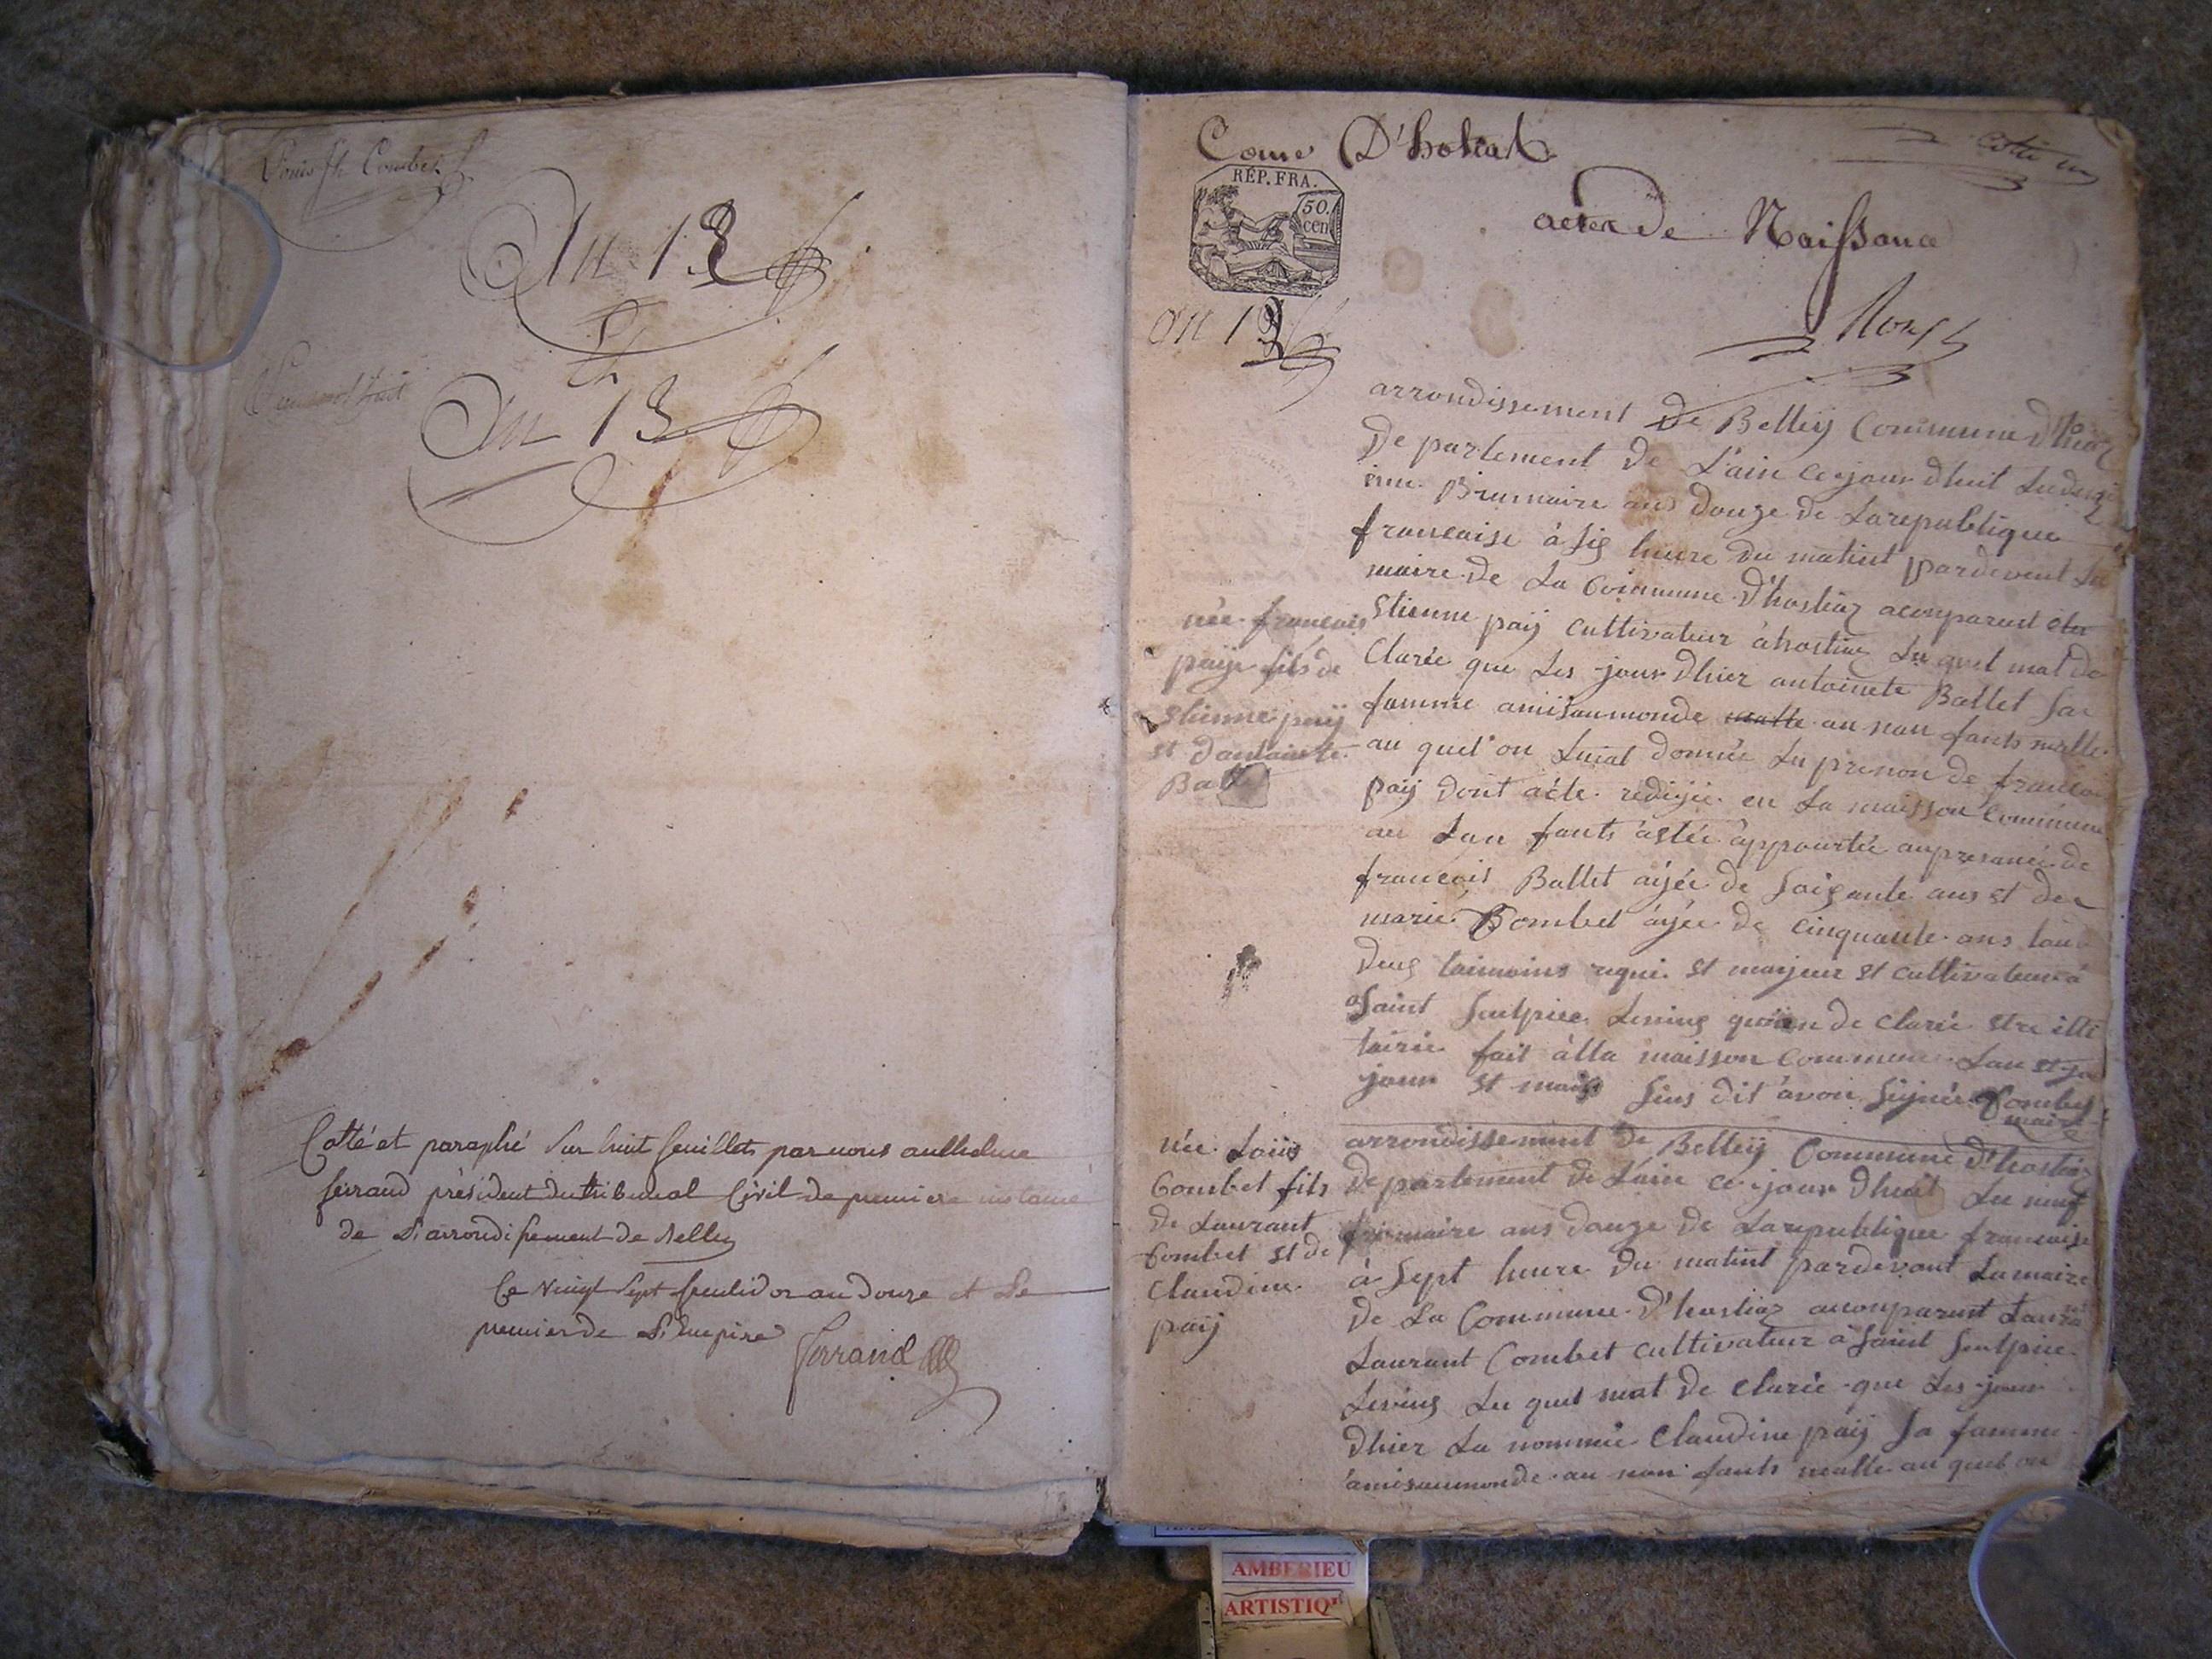 Louis fs Combet
An 13
An 13
Cotté et paraphé sur huit feuillets par nous anthelme
ferrand président du tribunal Civil de premiere instance
de L'arrondissement de Belley
Ce vingt sept fructidor an douze et Le
premier de L'Empire
ferrand
Comе D'hostiat
cotté un
RÉP. FRA.
50.
cen
actes de Naissance
an 13
arrondissement De Belleÿ Commune D'hostiaz
De partement De L'ain ce jour dhuit Lu
Brumaire ans douze De Larepublique
francaise à sig heure du matint pardevent Lu
maire de La Commune D'hostiaz aconparust
Etienne paÿ cultivateur àhostiaz Lu quel mat de
Clarée que Les jour Dhier antoinete Ballet sa
famme amisaumonde au nan fants malle
au quel on Luiat donnée Lu prenon de francois
paÿ dont acte redigée en La maisson Commune
au Lan fants astée appourtée anpresance de
francois Ballet aÿée de soigante ans et de
marie Combet aÿée de cinquante ans tout
Deus taimoins requi et majeur et cultivateur à
Saint Seulpice Levius de clarée
fait àlla maisson Commune Lan et
jour et mois sius dit avon signée Combet
maire
née francois
paÿe fils de
Etienne paÿ
et dantoinete
Ballet
arrondissement De Belleÿ Commune D'hostiaz
Departement de Lain ce jour dhuit Lu neuf
frimaire ans douze De Larepublique francaise
à sept heure du matint pardevant Lamaire
de La Commune D'hostiaz aconparust
Laurant Combet cultivateur à Saint Seulpice
Levius Lu quel mat de clarée que Les jour
Dhier La nommée Claudine paÿ sa famme
amisaumonde au nan fants malle au quel on
née Loüis
Combet fils
de Laurant
Combet et de
Claudine
paÿ
AMBERIEU
ARTISTIQ